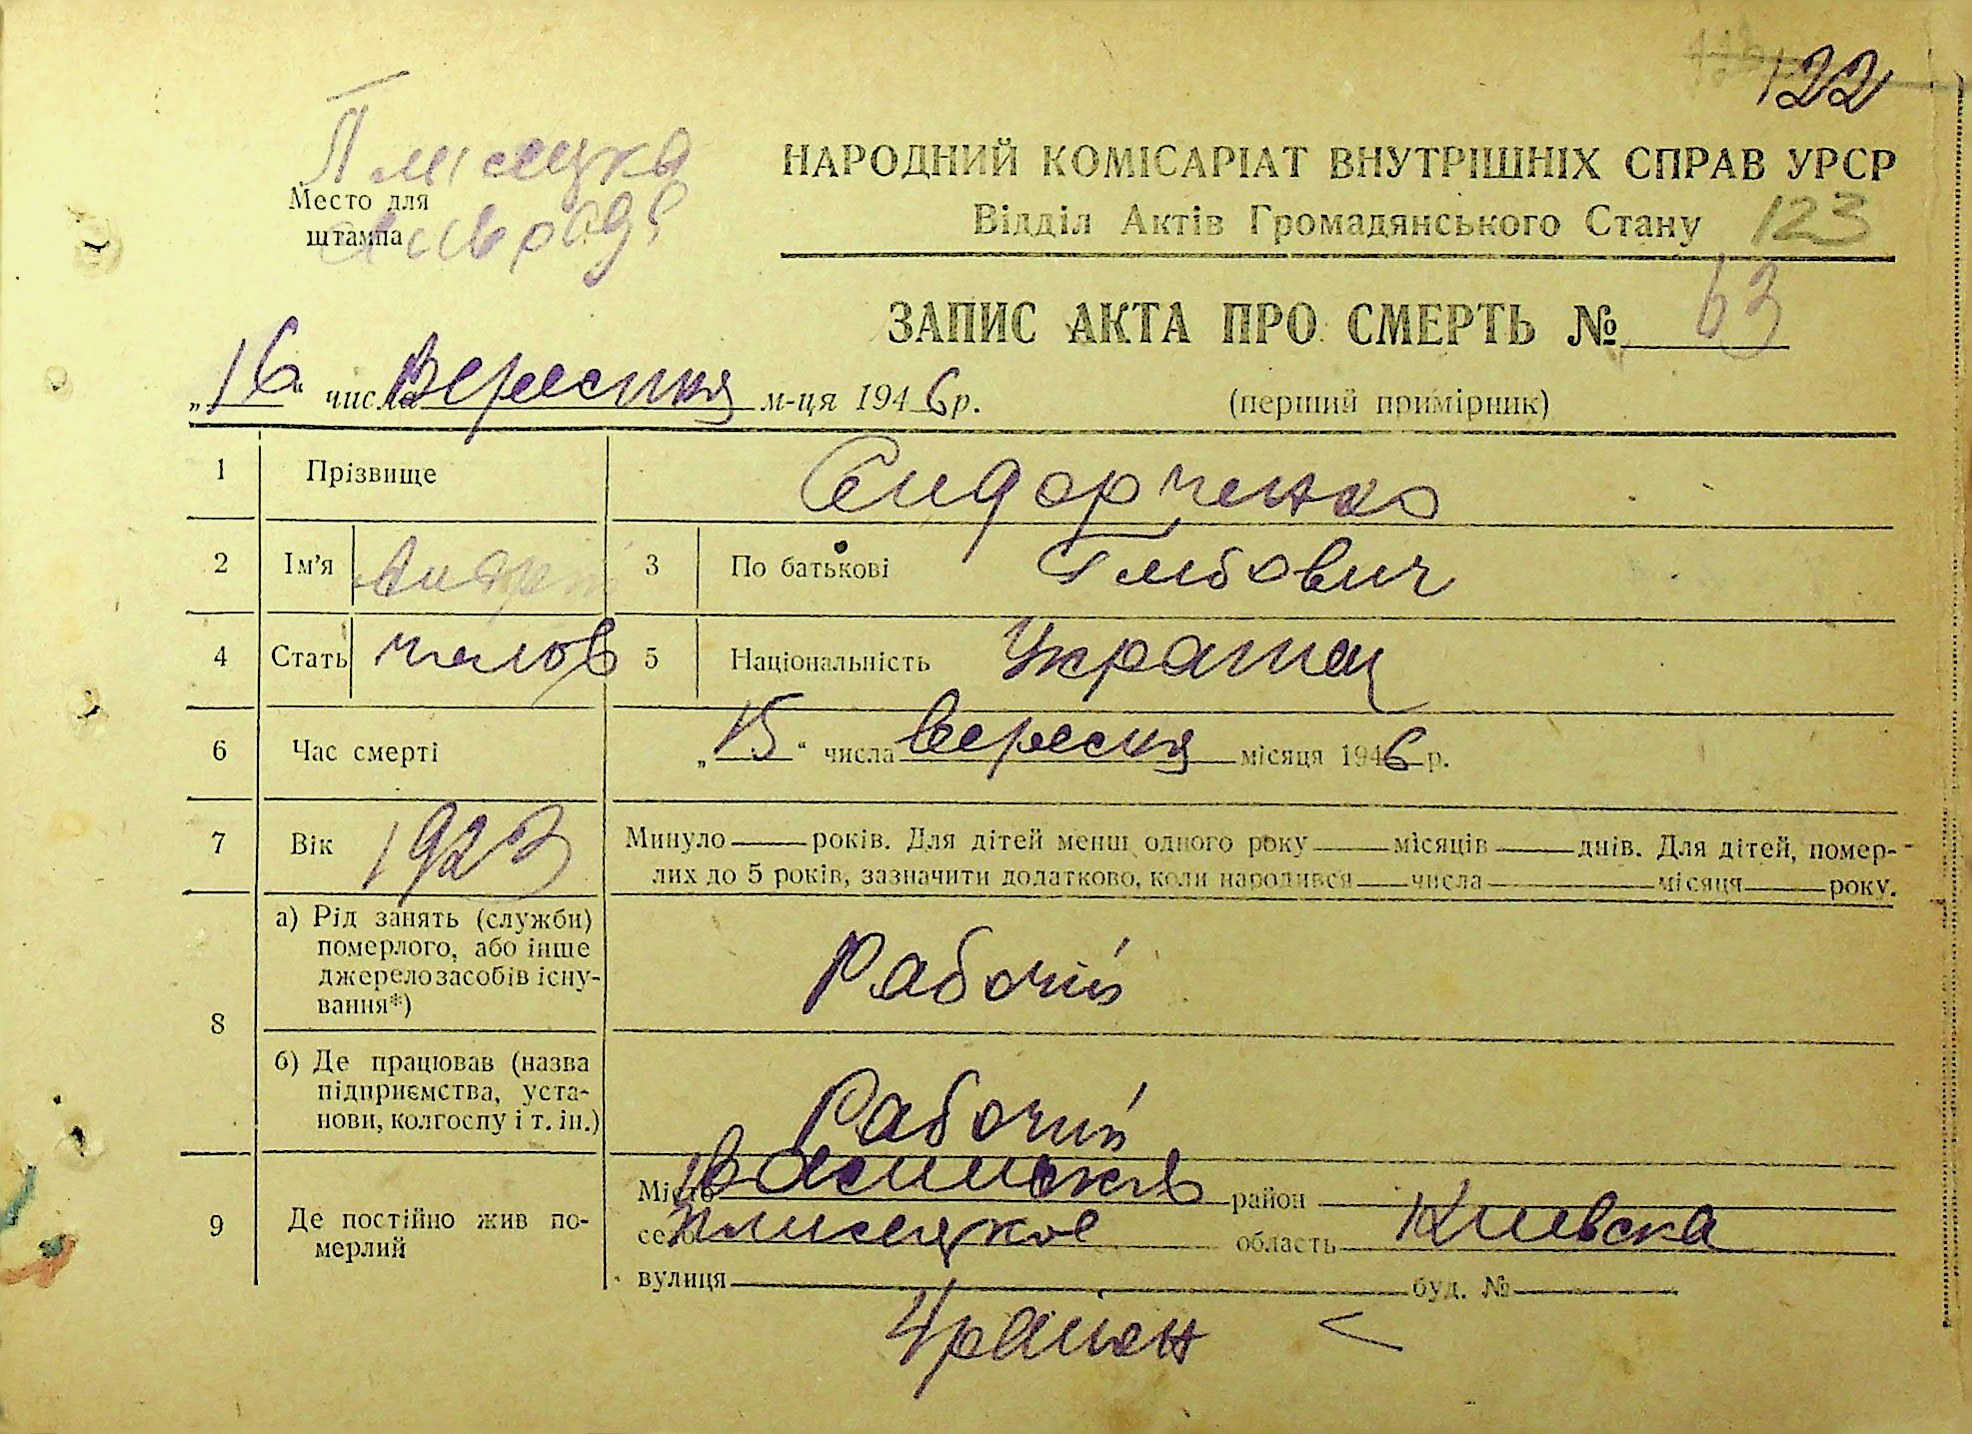 122
Плісецка
Место для
штампа
сільрада
НАРОДНИЙ КОМІСАРІАТ ВНУТРІШНІХ СПРАВ УРСР
Відділ Актів Громадянського Стану 123
ЗАПИС АКТА ПРО СМЕРТЬ № 63
„16“ числа Вересня м-ця 1946 р. (перший примірник)
1 Прізвище Сидорченко
2 Ім'я Андрій 3 По батькові Глібович
4 Стать чолов 5 Національність Українец
6 Час смерті „15“ числа вересня місяця 1946 р.
7 Вік 1923 Минуло ___ років. Для дітей менш одного року ___ місяців ___ днів. Для дітей, помер-
лих до 5 років, зазначити додатково, коли народився ___ числа ___ місяця ___ року.
8 а) Рід занять (служби)
померлого, або інше
джерело засобів існу-
вання*)
Рабочий
б) Де працював (назва
підприємства, уста-
нови, колгоспу і т. ін.)
Рабочий
9 Де постійно жив по-
мерлий
Місто район
село Плисецкое область Киевска
вулиця буд. №
район